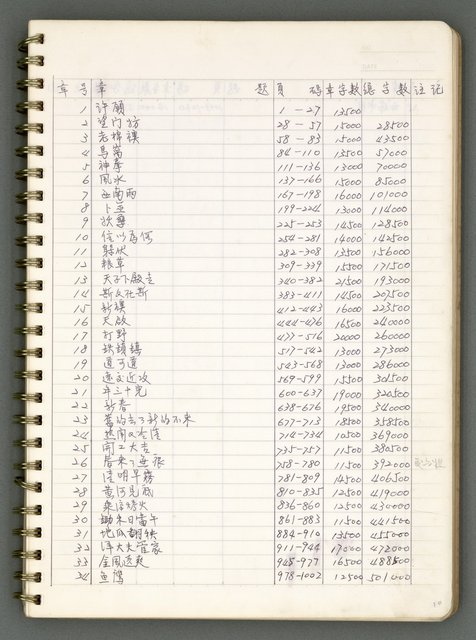 章 號 章 題 頁 碼 章字數 總字數 注記
1 許願 1-27 13500
2 望門 28-57 15000 28500
3 老棉襖 58-83 15000 43500
4 84-110 13500 57000
5 神 111-136 13000 70000
6 風水 137-166 15000 85000
7 西南雨 167-198 16000 101000
8 199-224 13000 114000
9 225-253 14500 128500
10 何 254-281 14000 142500
11 282-308 13500 156000
12 糧草 309-339 15500 171500
13 天子下殿走 340-382 21500 193000
14 383-411 14500 207500
15 412-443 16000 223500
16 天啟 444-476 16500 240000
17 打野 477-516 20000 260000
18 517-542 13000 273000
19 道可道 543-568 13000 286000
20 遠交近攻 569-599 15500 301500
21 年三十兒 600-637 19000 320500
22 新春 638-676 19500 340000
23 舊的去了新的不來 677-713 18500 358500
24 熱鬧又冷清 714-734 10500 369000
25 開工大吉 735-757 11500 380500
26 758-780 11500 392000
27 清明早霧 781-809 14500 406500
28 黃河見底 810-835 12500 419000
29 836-860 12500 430000
30 鋤禾日當午 861-883 11500 441500
31 地瓜翻秧 884-910 13500 455000
32 洋大夫管家 911-944 17000 472000
33 金風送爽 945-977 16500 488500
34 魚鷹 978-1002 12500 501000